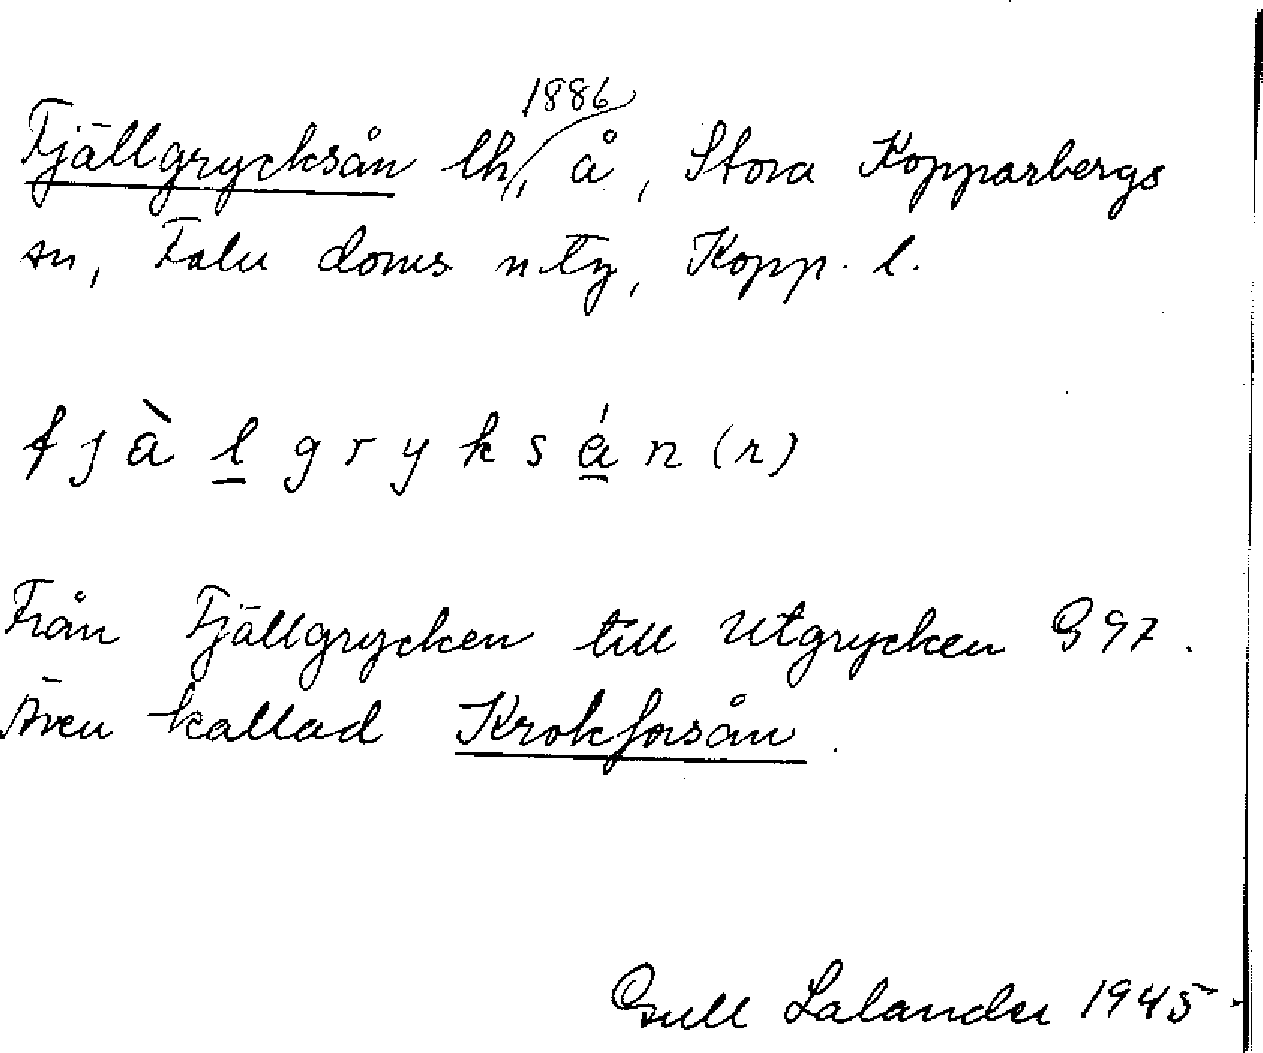 Fjällgrycksån lh, 1886, å, Stora Kopparbergs
sn, Falu doms ntg, Kopp. l.
fjä̀lgryksǻn (r)
Från Fjällgrycken till Utgrycken G 97.
Även kallad Krokforsån.
Gull Lalander 1945